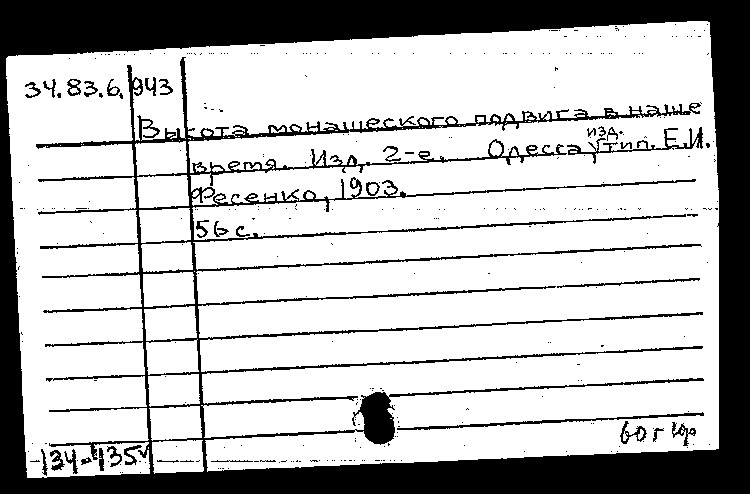 34.83.6.943
Высота монашеского подвига в наше
время. Изд. 2-е. Одесса, изд. тип. Е.И.
Фесенко, 1903.
56 с.
60 г